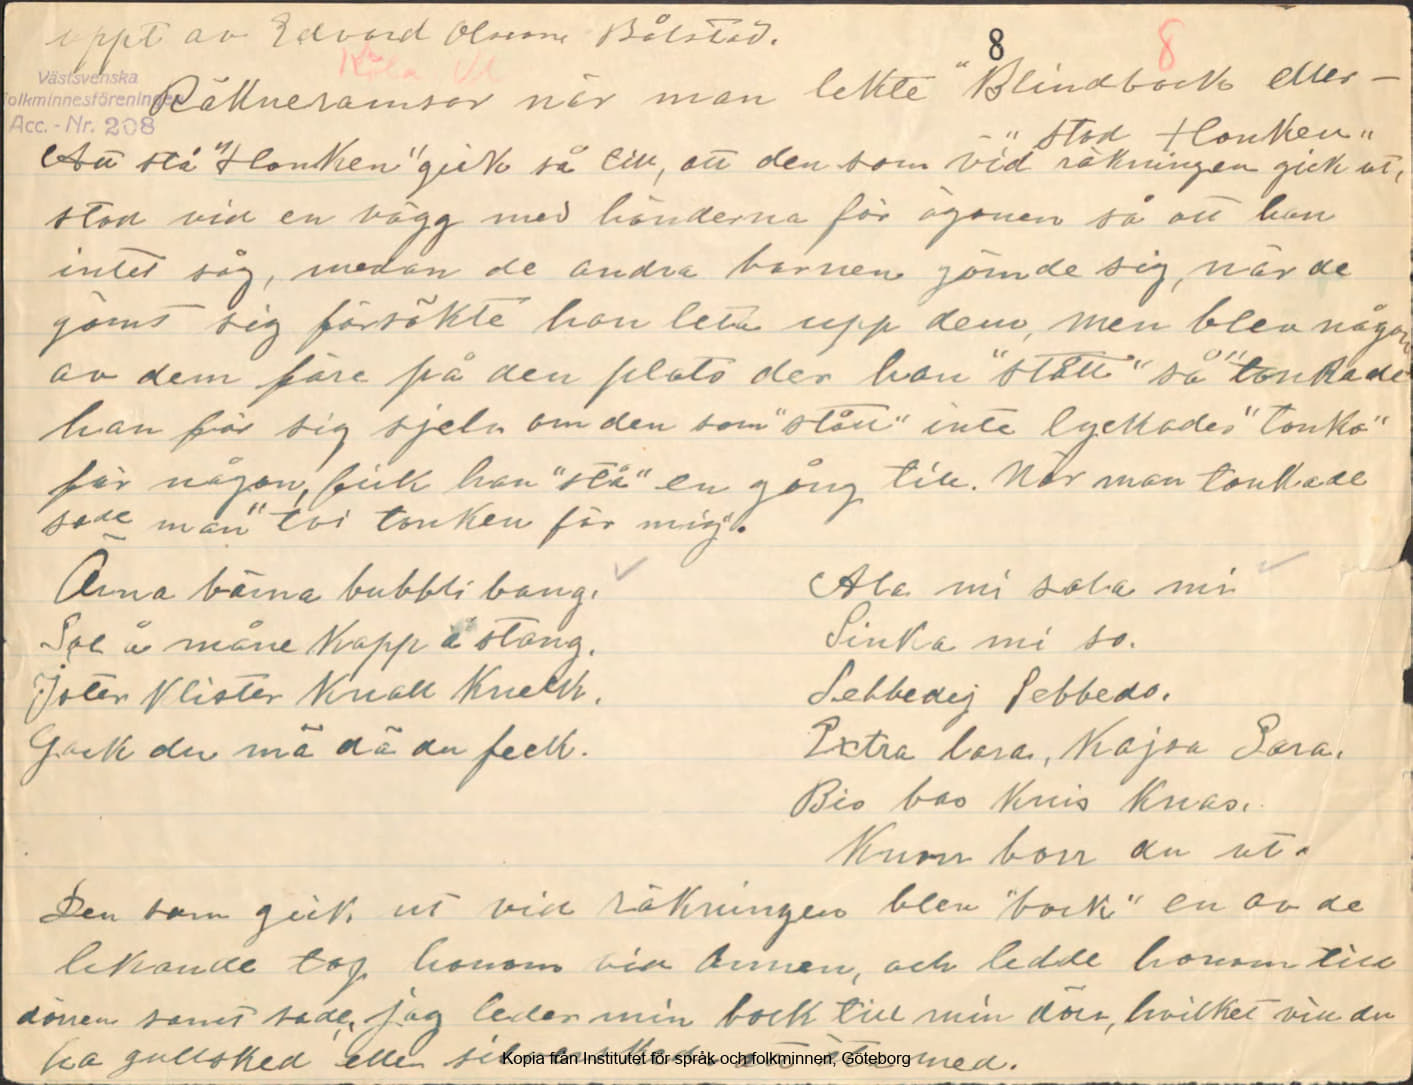 uppt av Edvard Olsson Bålstad.
8 8
Köla Vd
Västsvenska
folkminnesföreningen
Acc. - Nr. 208
Räkneramsor när man lekte "Blindbock eller —
—" stod Honken"
Att stå "Honken" gick så till, att den som vid räkningen gick ut,
stod vid en vägg med händerna för ögonen så att han
intet såg, medan de andra barnen gömde sig, när de
gömt sig försökte han leta upp dem, men blev någon
av dem före på den plats der han "stått" så "tonkade
han för sig sjelv om den som "stått" inte lyckades "tonka"
för någon, fick han "stå" en gång till. När man tonkade
sade man "tvi tonken för mig".
Änna bänna bubbli bang.
Sol å måne Kapp å stang.
Jster Klister Knall Knelk.
Gack du mä dä du feck.
Ala mi sala mi
Sinka mi so.
Sebbedej Sebbedo.
Extra lara, Kajsa Sara.
Bis bas Knis Knas.
Knorr borr du ut.
Den som gick ut vid räkningen blev "bock" en av de
lekande tog honom vid armen, och ledde honom till
dörren samt sade, jag leder min bock till min dörr, hvilket vill du
ha gullsked eller silversked att äta med.
Kopia från Institutet för språk och folkminnen, Göteborg